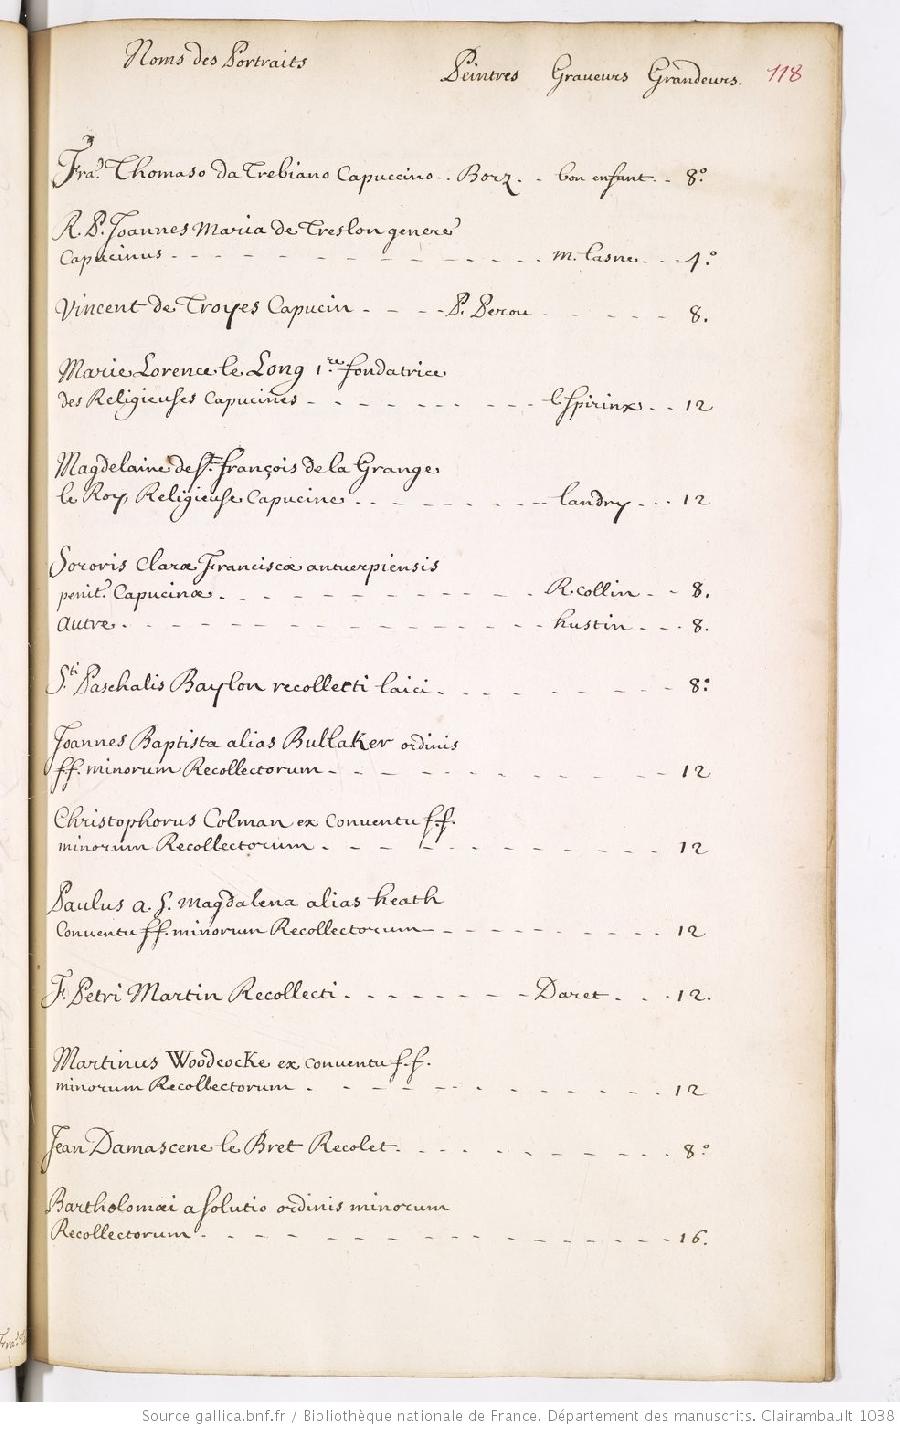 Noms des Portraits Peintres Graveurs Grandeurs. 118
Fra. Thomaso da Trebiano Capuccino . Borz. . bon enfant . . 8.o
R. P. Joannes Maria de Treslon genere
Capucinus - - - m. lasne . . . 4.o
Vincent de Troyes Capucin - - - P. Perou - - - 8.
Marie Lorence le Long 1.re fondatrice
des Religieuses Capucines - - - Spirinx . . 12
Magdelaine de St. françois de la Grange
le Roy Religieuse Capucine . - - - landry . . . 12
Sororis Claræ Franciscæ antuerpiensis
penit. Capucinæ . - - - R. collin - - 8.
autre . - - - hustin . . . 8.
S.ti Paschalis Baylon recollecti laici . - - - 8.o
Joannes Baptista alias Bullaker ordinis
ff. minorum Recollectorum - - - 12
Christophorus Colman ex Conventu f.f.
minorum Recollectorum . - - - 12
Paulus a. S. magdalena alias heath
Conventu ff. minorum Recollectorum - - - 12
F. Petri Martin Recollecti . - - - Daret . . . 12.
Martinus Woodcocke ex conventu f.f.
minorum Recollectorum . - - - 12
Jean Damascene le Bret Recolet . - - - 8.o
Bartholomæi a solutio ordinis minorum
Recollectorum . - - - 16.
Source gallica.bnf.fr / Bibliothèque nationale de France. Département des manuscrits. Clairambault 1038